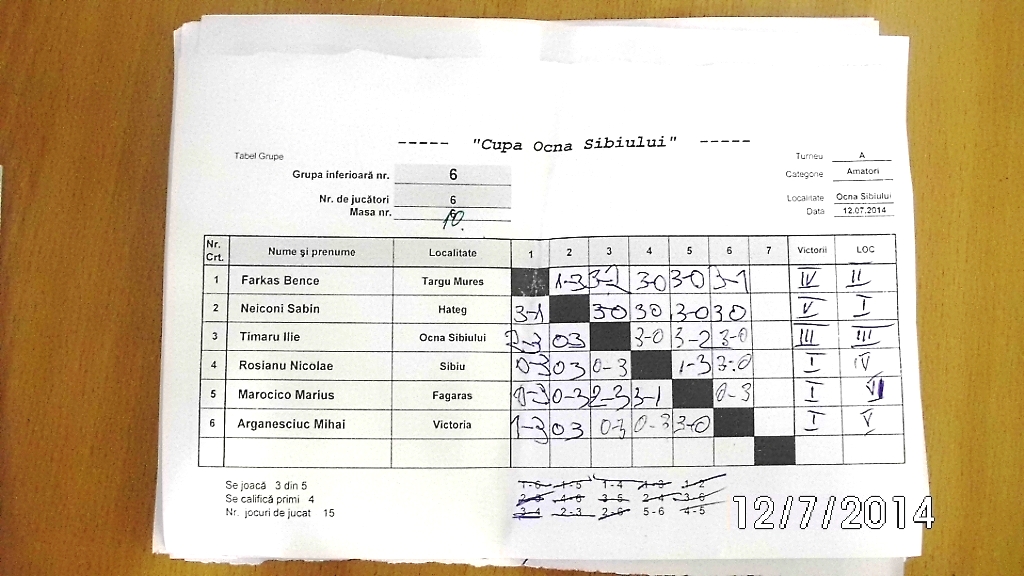 ----- "Cupa Ocna Sibiului" -----
Tabel Grupe
Turneu A
Grupa inferioară nr. 6
Categorie Amatori
Nr. de jucători 6
Localitate Ocna Sibiului
Masa nr. 10.
Data 12.07.2014
Nr. Crt. Nume și prenume Localitate 1 2 3 4 5 6 7 Victorii LOC
1 Farkas Bence Targu Mures 1-3 3-2 30 3-0 3-1 IV II
2 Neiconi Sabin Hateg 3-1 30 30 3-0 30 V I
3 Timaru Ilie Ocna Sibiului 2-3 03 3-0 3-2 3-0 III III
4 Rosianu Nicolae Sibiu 0-3 03 0-3 1-3 3-0 I IV
5 Marocico Marius Fagaras 0-3 0-3 2-3 3-1 0-3 I VI
6 Arganesciuc Mihai Victoria 1-3 03 0-3 0-3 3-0 I V
Se joacă 3 din 5
Se califică primi 4
Nr. jocuri de jucat 15
1-6 1-5 1-4 1-3 1-2
2-5 4-6 3-5 2-4 3-6
3-4 2-3 2-6 5-6 4-5
12/7/2014